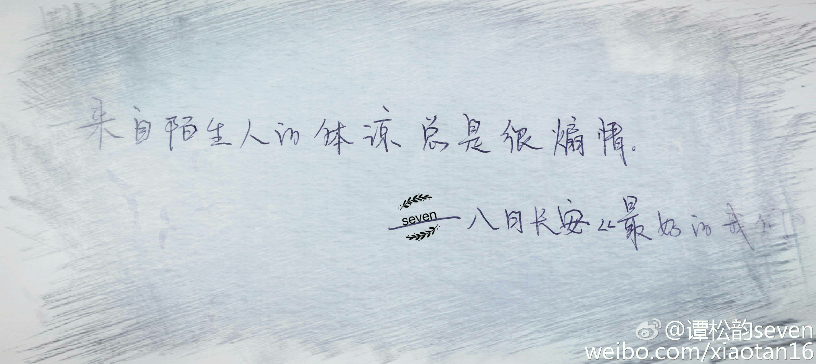 来自陌生人的体谅总是很煽情.
seven
——八月长安《最好的我们
@谭松韵seven
weibo.com/xiaotan16